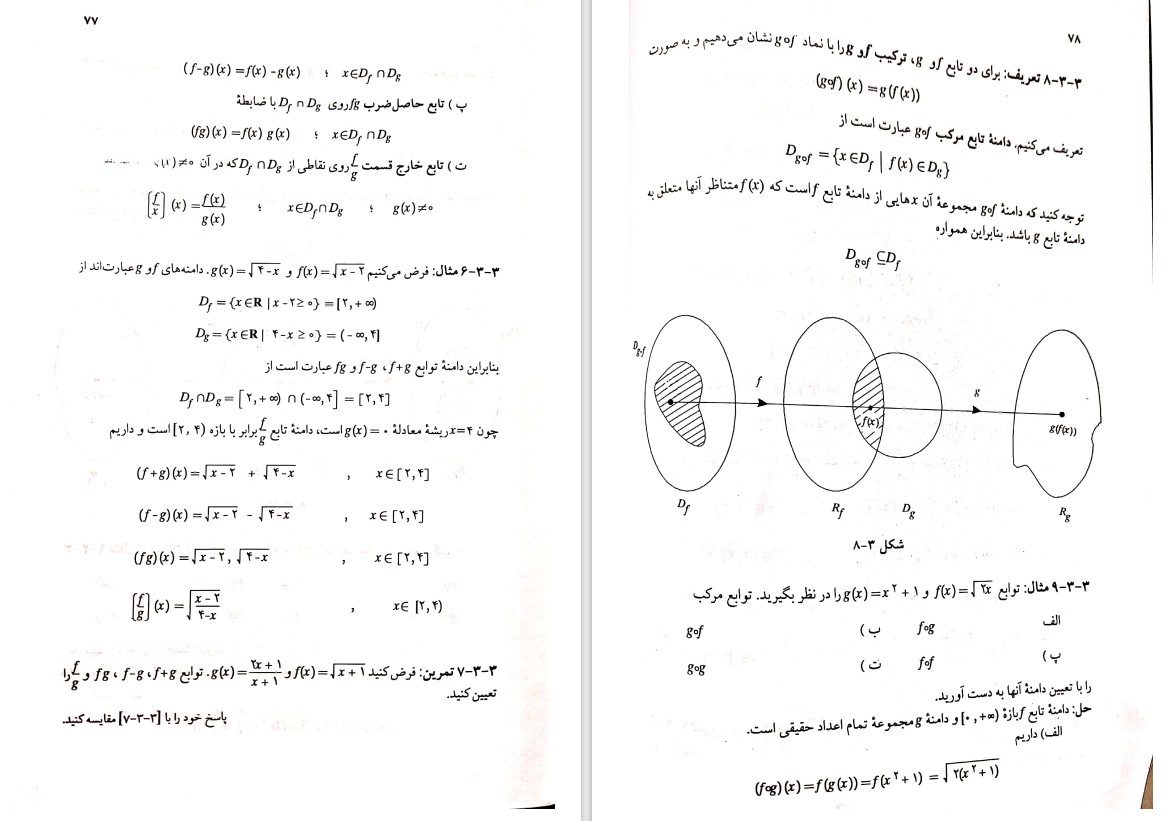 ۷۷
(f-g)(x)=f(x)-g(x) ؛ x∈D_f ∩ D_g
پ) تابع حاصل‌ضرب fg روی D_f ∩ D_g با ضابطهٔ
(fg)(x)=f(x) g(x) ؛ x∈D_f ∩ D_g
ت) تابع خارج قسمت f/g روی نقاطی از D_f ∩ D_g که در آن
[f/x](x)=f(x)/g(x) ؛ x∈D_f ∩ D_g ؛ g(x)≠۰
۳-۳-۶ مثال: فرض می‌کنیم f(x)=√(x-۲) و g(x)=√(۴-x). دامنه‌های f و g عبارت‌اند از
D_f={x∈R | x-۲≥۰}=[۲,+∞)
D_g={x∈R | ۴-x≥۰}=(-∞,۴]
بنابراین دامنهٔ توابع f+g ، f-g و fg عبارت است از
D_f∩D_g=[۲,+∞)∩(-∞,۴]=[۲,۴]
چون x=۴ ریشهٔ معادلهٔ g(x)=۰ است، دامنهٔ تابع f/g برابر با بازه [۲,۴) است و داریم
(f+g)(x)=√(x-۲) + √(۴-x) , x∈[۲,۴]
(f-g)(x)=√(x-۲) - √(۴-x) , x∈[۲,۴]
(fg)(x)=√(x-۲), √(۴-x) , x∈[۲,۴]
[f/g](x)=√((x-۲)/(۴-x)) , x∈[۲,۴)
۳-۳-۷ تمرین: فرض کنید f(x)=√(x+۱) و g(x)=(۲x+۱)/(x+۱). توابع f+g، f-g، fg و f/g را
تعیین کنید.
پاسخ خود را با [۳-۳-۷] مقایسه کنید.
۷۸
۳-۳-۸ تعریف: برای دو تابع f و g، ترکیب f و g را با نماد g∘f نشان می‌دهیم و به صورت
(g∘f)(x)=g(f(x))
تعریف می‌کنیم. دامنهٔ تابع مرکب g∘f عبارت است از
D_g∘f={x∈D_f | f(x)∈D_g}
توجه کنید که دامنهٔ g∘f مجموعهٔ آن xهایی از دامنهٔ تابع f است که f(x) متناظر آنها متعلق به
دامنهٔ تابع g باشد. بنابراین همواره
D_g∘f⊆D_f
D_g∘f
f
g
f(x)
g(f(x))
D_f
R_f
D_g
R_g
شکل ۳-۸
۳-۳-۹ مثال: توابع f(x)=√(۲x) و g(x)=x²+۱ را در نظر بگیرید. توابع مرکب
الف f∘g ب) g∘f
پ) f∘f ت) g∘g
را با تعیین دامنهٔ آنها به دست آورید.
حل: دامنهٔ تابع f بازهٔ [۰,+∞) و دامنهٔ g مجموعهٔ تمام اعداد حقیقی است.
الف) داریم
(f∘g)(x)=f(g(x))=f(x²+۱)=√(۲(x²+۱))